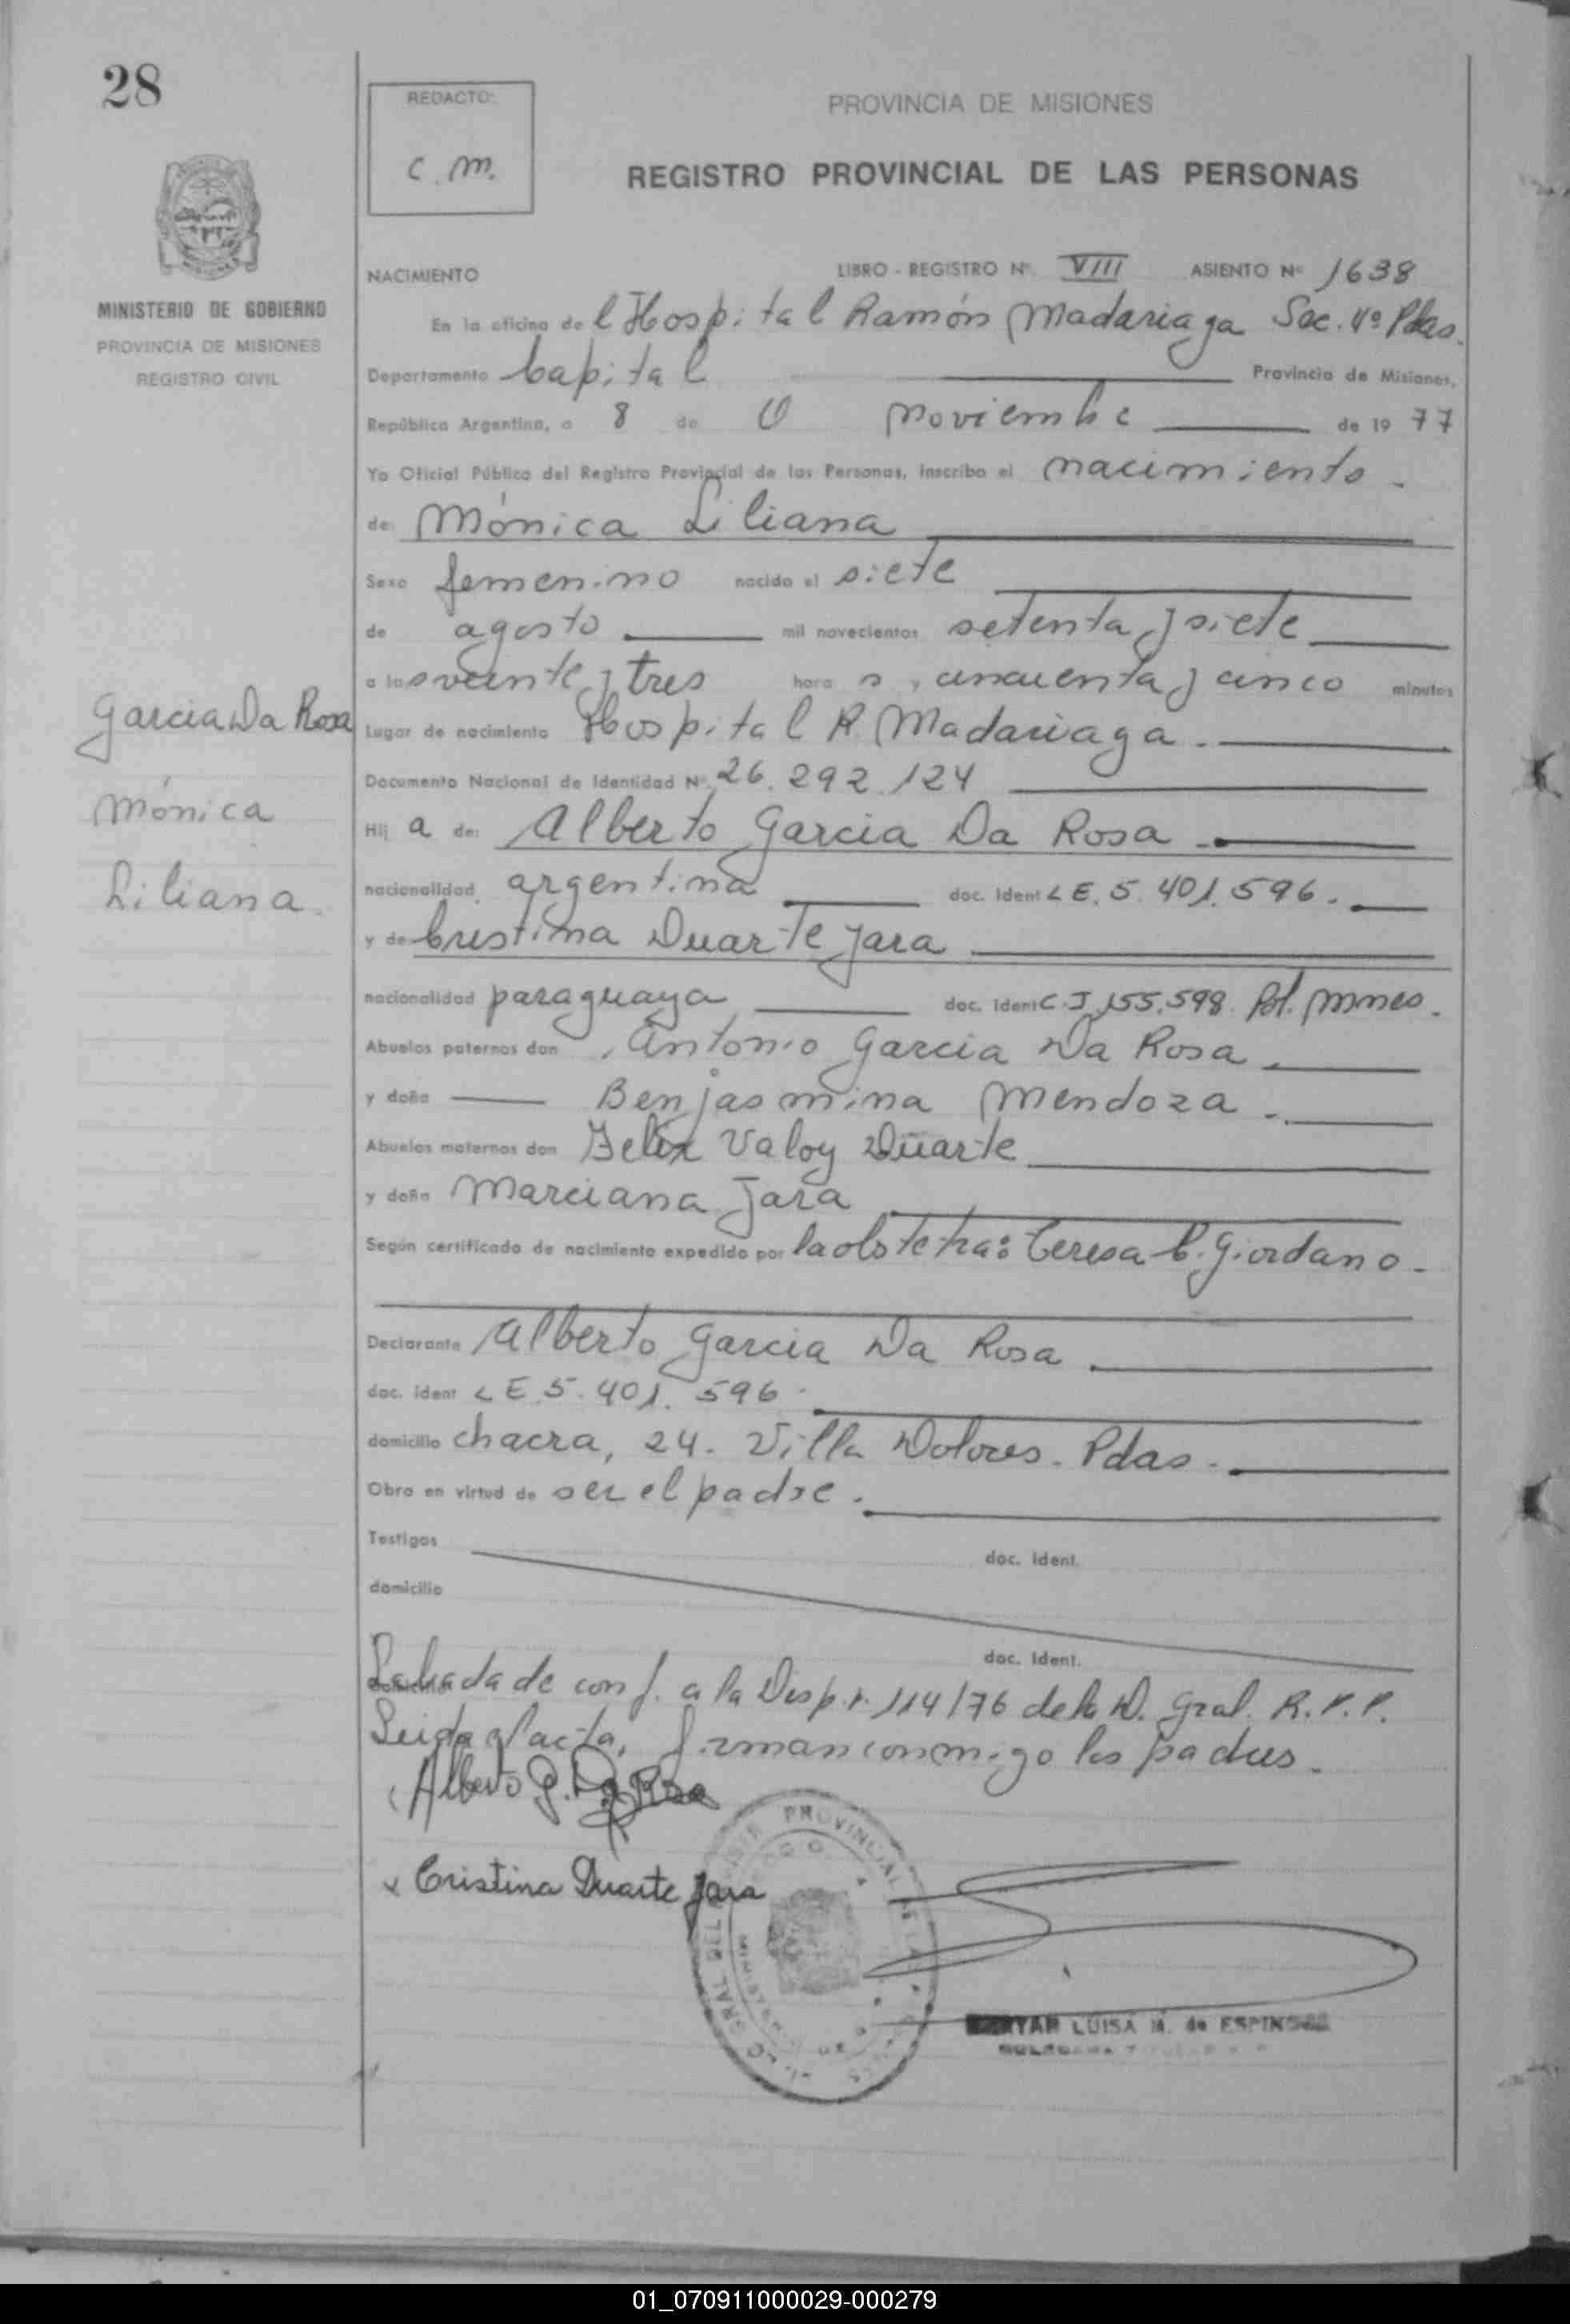 28
REDACTO:
C. M.
PROVINCIA DE MISIONES
REGISTRO PROVINCIAL DE LAS PERSONAS
MINISTERIO DE GOBIERNO
PROVINCIA DE MISIONES
REGISTRO CIVIL
NACIMIENTO LIBRO - REGISTRO Nº VIII ASIENTO Nº 1638
En la oficina del Hospital Ramón Madariaga Sec. Vº Pdas.
Departamento Capital Provincia de Misiones,
República Argentina, a 8 de noviembre de 1977
Yo Oficial Público del Registro Provincial de las Personas, inscribo el nacimiento.
de: Mónica Liliana
Sexo femenino nacido el siete
de agosto mil novecientos setenta y siete
a las veinte y tres horas y cincuenta y cinco minutos
Garcia Da Rosa
Mónica
Liliana.
Lugar de nacimiento Hospital R. Madariaga.
Documento Nacional de Identidad Nº 26.292.124
Hija de: Alberto Garcia Da Rosa
nacionalidad argentina doc. Ident L E. 5.401.596.
y de Cristina Duarte Jara
nacionalidad paraguaya doc. Ident C.I 155.598. Pol. Mnes.
Abuelos paternos don Antonio Garcia Da Rosa
y doña Benjasmina Mendoza.
Abuelos maternos don Felix Valoy Duarte
y doña Marciana Jara
Según certificado de nacimiento expedido por la obstetra: Teresa C. Giordano.
Declarante Alberto Garcia Da Rosa
doc. Ident L E. 5.401.596.
domicilio chacra, 24. Villa Dolores. Pdas.
Obra en virtud de ser el padre.
Testigos doc. Ident.
domicilio
doc. Ident.
Labrada de conf. a la Disp. 114/76 de la D. Gral. R.P.P.
Leida el acta, firman conmigo los padres.
Alberto G. Da Rosa
x Cristina Duarte Jara
PROVINCIAL
LUISA M. de ESPINOSA
01_070911000029-000279